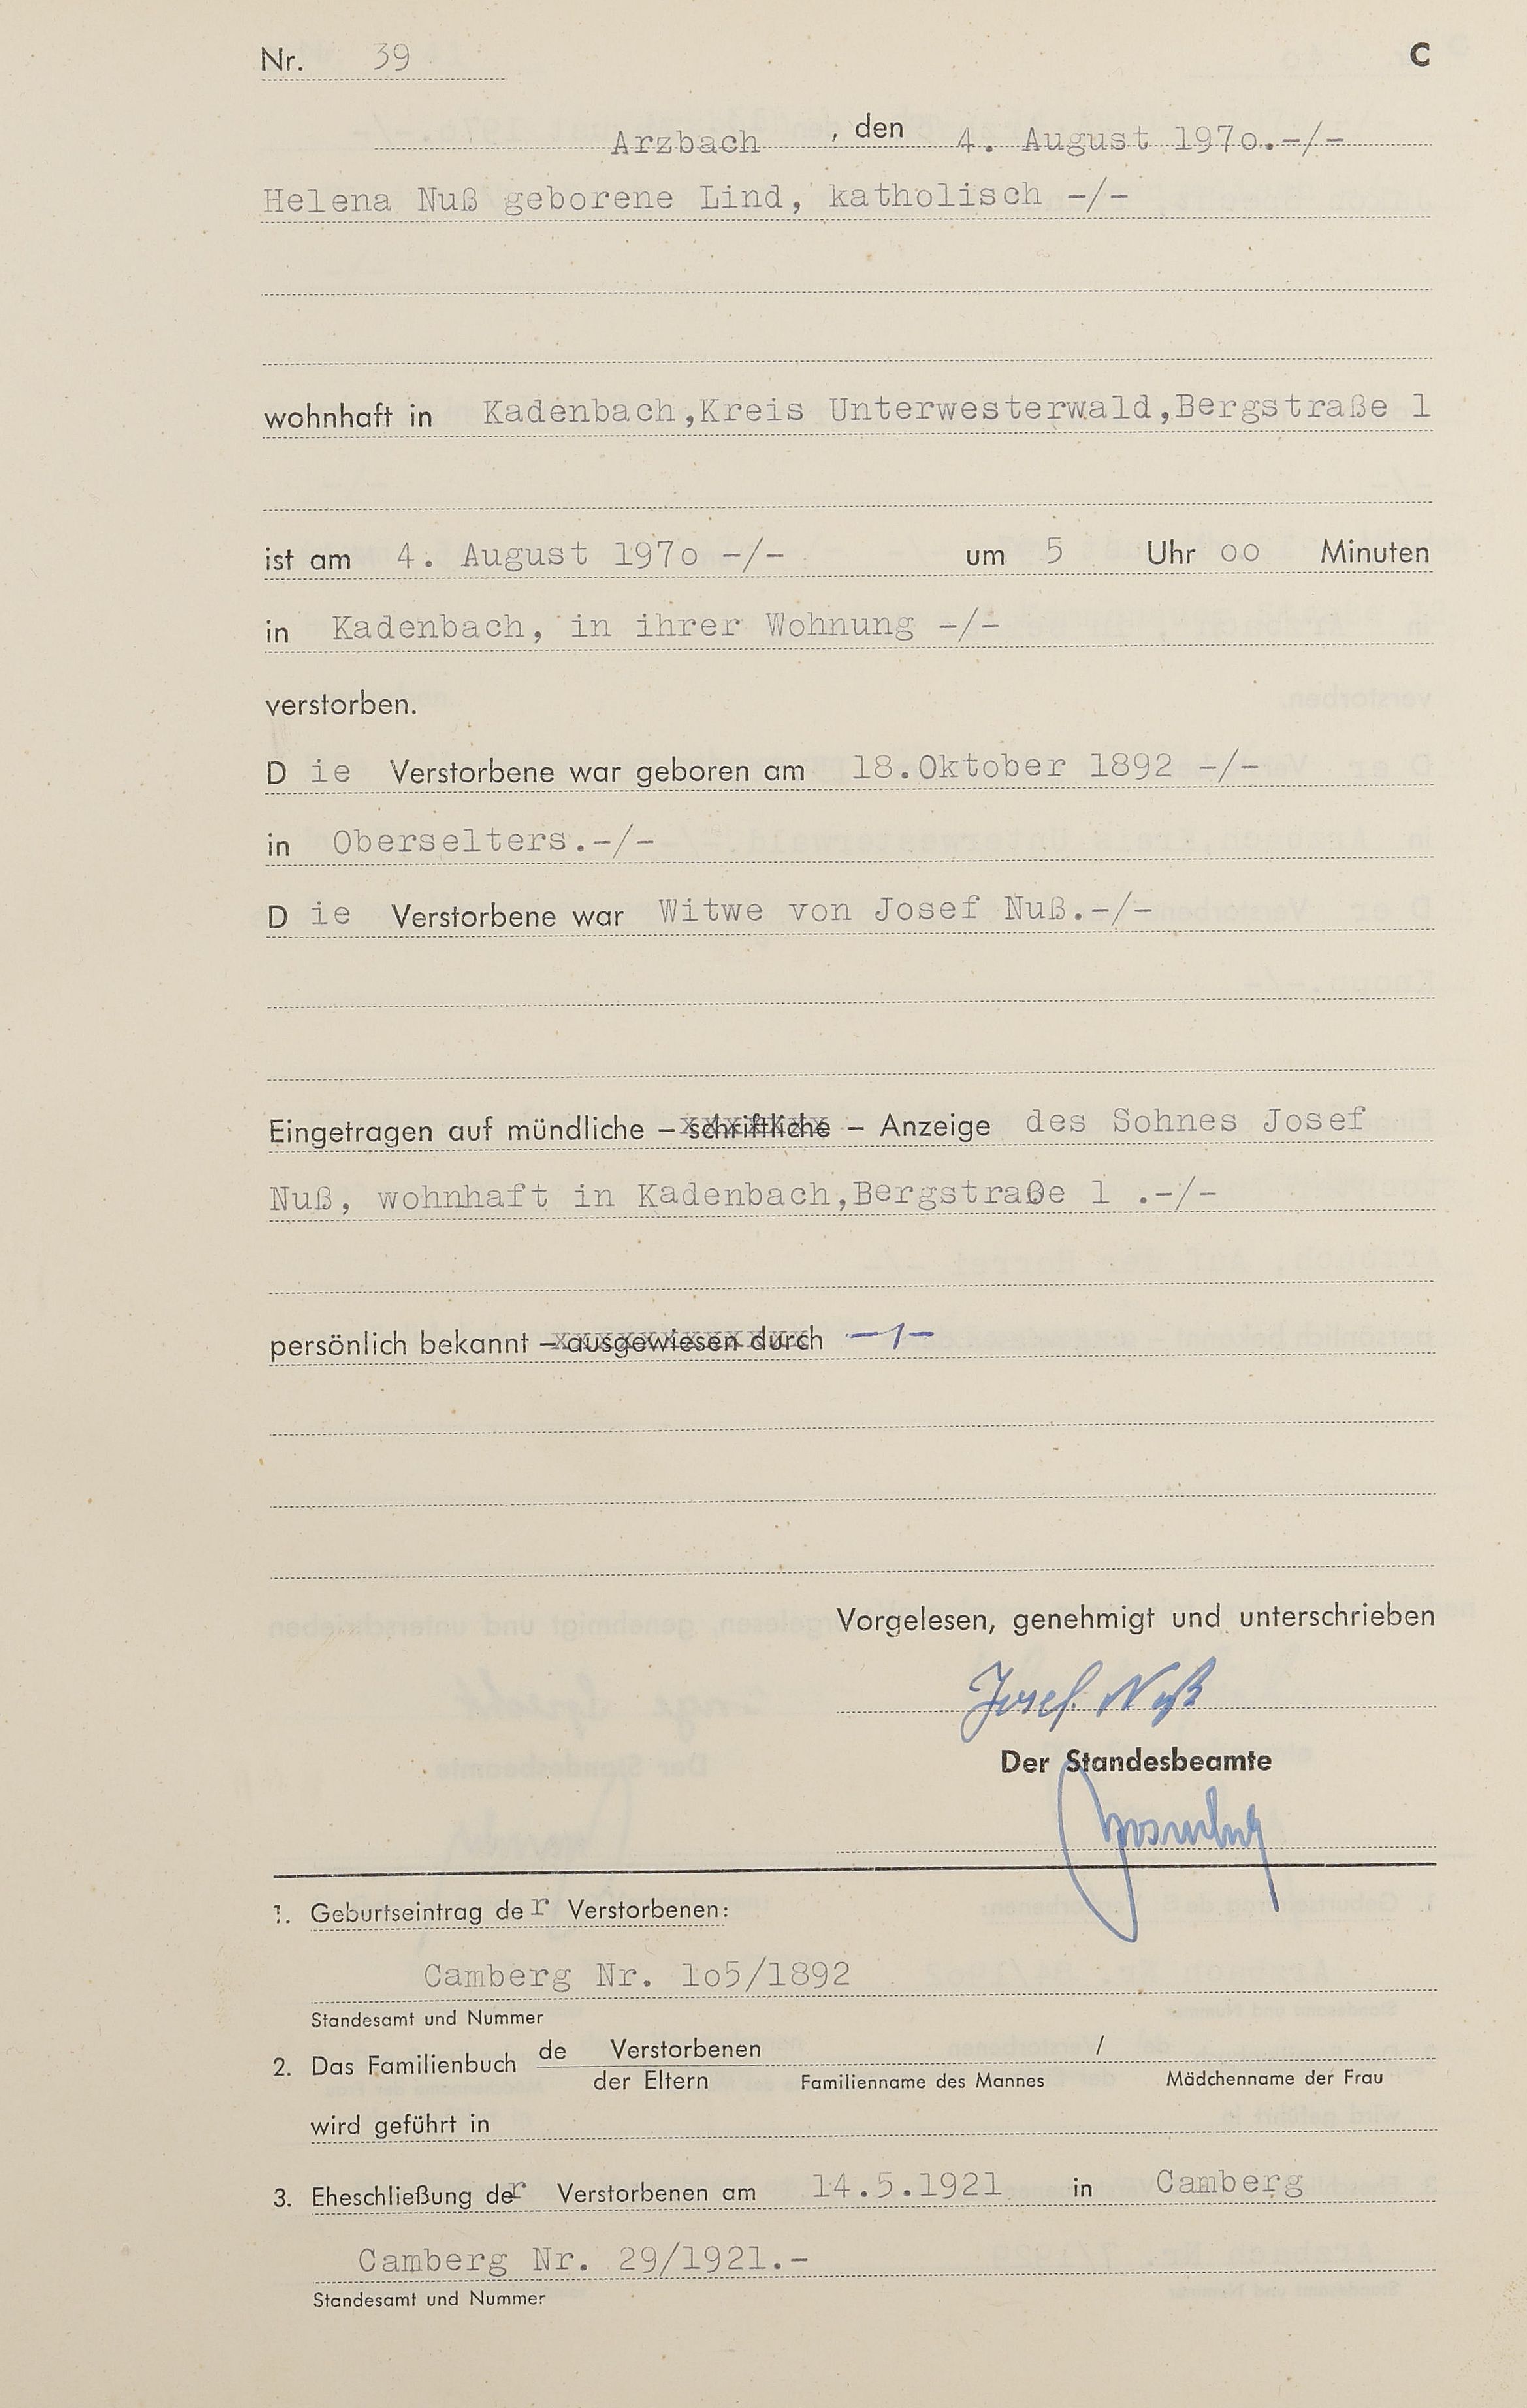 Nr. 39 C
Arzbach , den 4. August 197o.-/-
Helena Nuß geborene Lind, katholisch -/-
wohnhaft in Kadenbach,Kreis Unterwesterwald,Bergstraße 1
ist am 4. August 197o -/- um 5 Uhr oo Minuten
in Kadenbach, in ihrer Wohnung -/-
verstorben.
D ie Verstorbene war geboren am 18.Oktober 1892 -/-
in Oberselters.-/-
D ie Verstorbene war Witwe von Josef Nuß.-/-
Eingetragen auf mündliche – schriftliche – Anzeige des Sohnes Josef
Nuß, wohnhaft in Kadenbach,Bergstraße 1 .-/-
persönlich bekannt – ausgewiesen durch -/-
Vorgelesen, genehmigt und unterschrieben
Josef Nuß
Der Standesbeamte
1. Geburtseintrag de r Verstorbenen:
Camberg Nr. 1o5/1892
Standesamt und Nummer
2. Das Familienbuch de Verstorbenen /
der Eltern Familienname des Mannes Mädchenname der Frau
wird geführt in
3. Eheschließung der Verstorbenen am 14.5.1921 in Camberg
Camberg Nr. 29/1921.-
Standesamt und Nummer